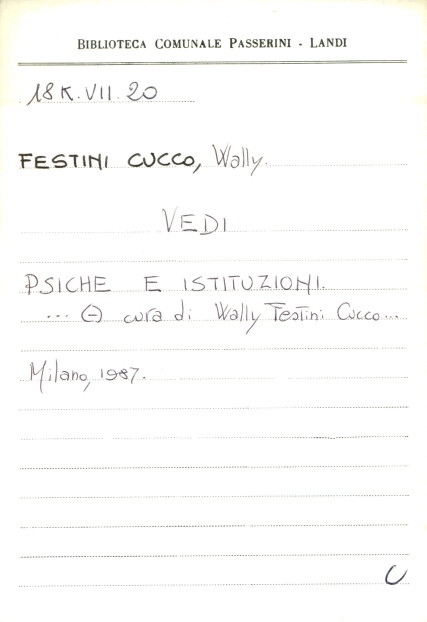 BIBLIOTECA COMUNALE PASSERINI - LANDI
18 K. VII. 20
FESTINI CUCCO, Wally.
VEDI
PSICHE E ISTITUZIONI.
... (-) cura di Wally Festini Cucco...
Milano, 1987.
C